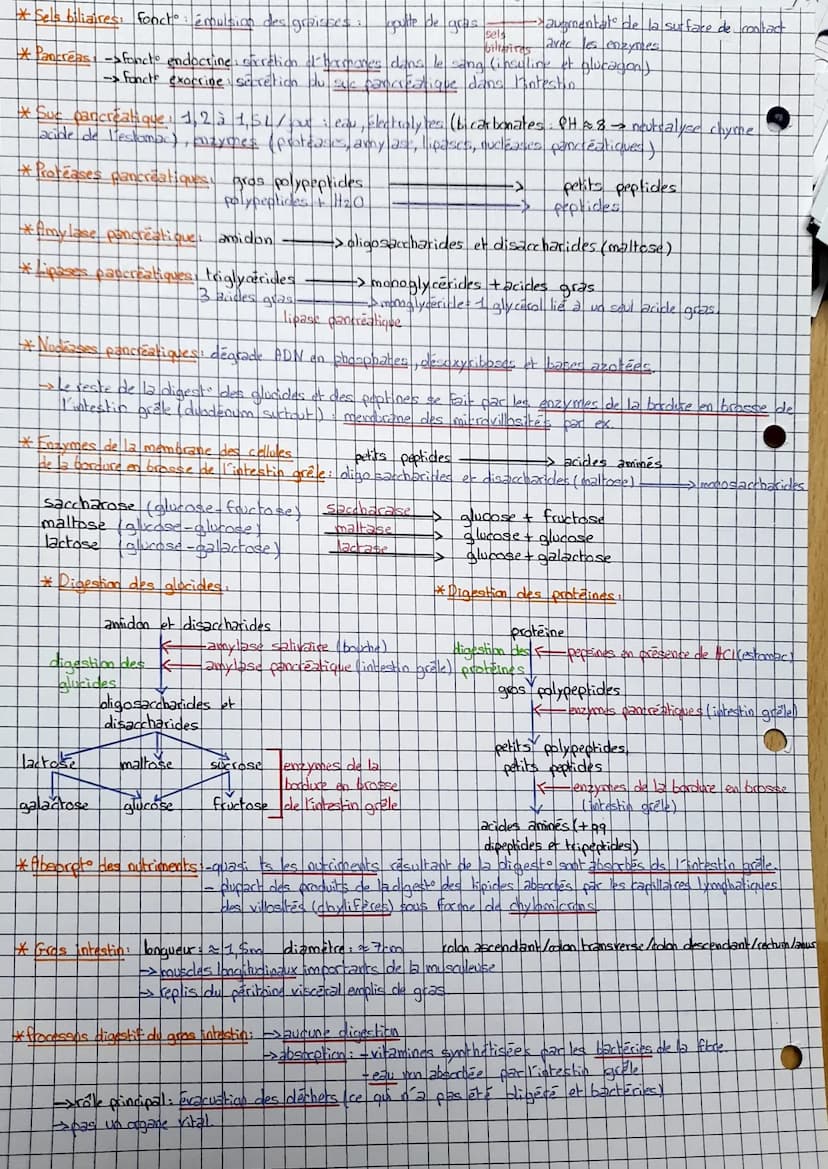 * Sels biliaires: foncto: émulsion des graisses: goutte de gras sels biliaires → augmentato de la surface de contact avec les enzymes
* Pancréas: → foncto endocrine: sécrétion d'hormones dans le sang (insuline et glucagon)
→ foncto exocrine: sécrétion du suc pancréatique dans l'intestin
* Suc pancréatique: 1,2 à 1,5L/jour: eau, électrolytes (bicarbonates: PH ≈ 8 → neutralyse chyme
acide de l'estomac), enzymes (protéases, amylase, lipases, nucléases pancréatiques)
* Protéases pancréatiques: gros polypeptides → petits peptides
polypeptides + H2O → peptides
* Amylase pancréatique: amidon → oligosaccharides et disaccharides (maltose)
* Lipases pancréatiques: triglycérides → monoglycérides + acides gras
3 acides gras → monoglyceride: 1 glycérol lié à un seul acide gras.
lipase pancréatique
* Nucléases pancréatiques: dégrade ADN en phosphates, désoxyriboses et bases azotées.
→ Le reste de la digesto des glucides et des peptines se fait par les enzymes de la bordure en brosse de
l'intestin grêle (duodénum surtout): membrane des mitrovillosités par ex.
* Enzymes de la membrane des cellules
de la bordure en brosse de l'intestin grêle: petits peptides → acides aminés
oligosaccharides et disaccharides (maltose) → monosaccharides
saccharose (glucose-fructose) saccharase → glucose + fructose
maltose (glucose-glucose) maltase → glucose + glucose
lactose (glucose-galactose) lactase → glucose + galactose
* Digestion des glucides:
amidon et disaccharides
← amylase salivaire (bouche)
digestion des glucides ← amylase pancréatique (intestin grêle)
oligosaccharides et
disaccharides
lactose maltose sucrose
galactose glucose fructose
enzymes de la
bordure en brosse
de l'intestin grêle
* Digestion des protéines:
protéine
digestion des protéines ← pepsines en présence de HCl (estomac)
gros polypeptides
← enzymes pancréatiques (intestin grêle)
petits polypeptides,
petits peptides
← enzymes de la bordure en brosse
(intestin grêle)
acides aminés (+ qq
dipeptides et tripeptides)
* Absorpto des nutriments: - quasi ts les nutriments résultant de la digesto sont absorbés ds l'intestin grêle
- plupart des produits de la digesto des lipides absorbés par les capillaires lymphatiques
des villosités (chylifères) sous forme de chylomicrons
* Gros intestin: longueur: ≈ 1,5m diamètre: ≈ 7cm colon ascendant/colon transverse/colon descendant/rectum/anus
→ muscles longitudinaux importants de la musculeuse
→ replis du péritoine viscéral emplis de gras
* Processus digestif du gros intestin: → aucune digestion
→ absorption: - vitamines synthétisées par les bactéries de la flore
- eau non absorbée par l'intestin grêle
→ rôle principal: évacuation des déchets (ce qui n'a pas été digéré et bactéries)
→ pas un organe vital.